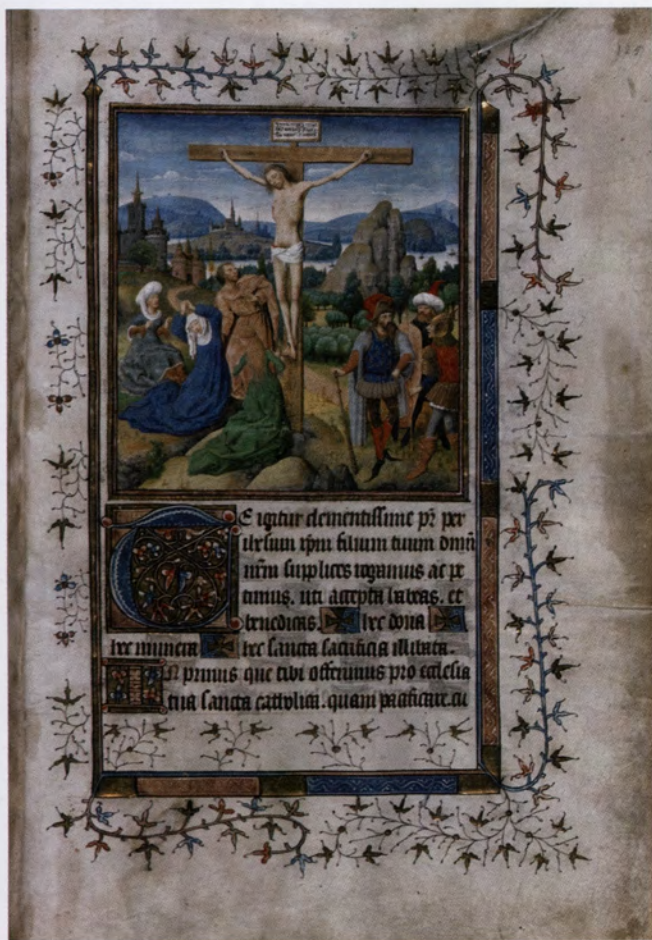 Te igitur clementissime pr̄ per
ihesum xp̄m filium tuum dm̄n
nr̄m supplices rogamus ac pe
timus. uti accepta habeas. et
benedicas. hec dona
hec munera hec sancta sacrificia illibata.
In primis que tibi offerimus pro ecclesia
tua sancta catholica. quam pacificare cu